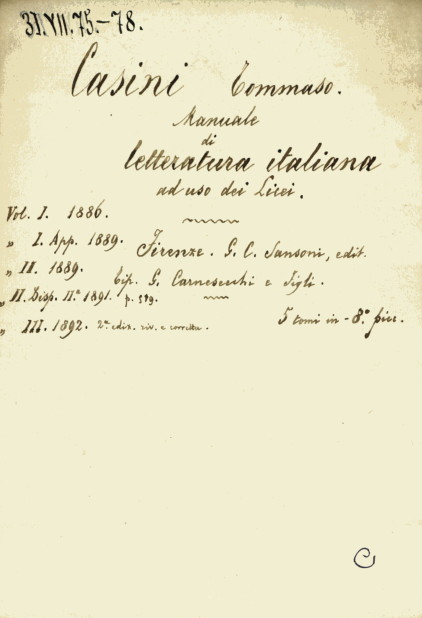 31.VII.75.-78.
Casini Tommaso.
Manuale
di
letteratura italiana
ad uso dei Licei.
Vol. I. 1886.
„ I. App. 1889.
Firenze. G. C. Sansoni, edit.
„ II. 1889.
Tip. G. Carnesecchi e Figli.
„ II. Disp. II.ª 1891. p. 599.
„ III. 1892. 2ª ediz. riv. e corretta.
5 tomi in-8.° picc.
C